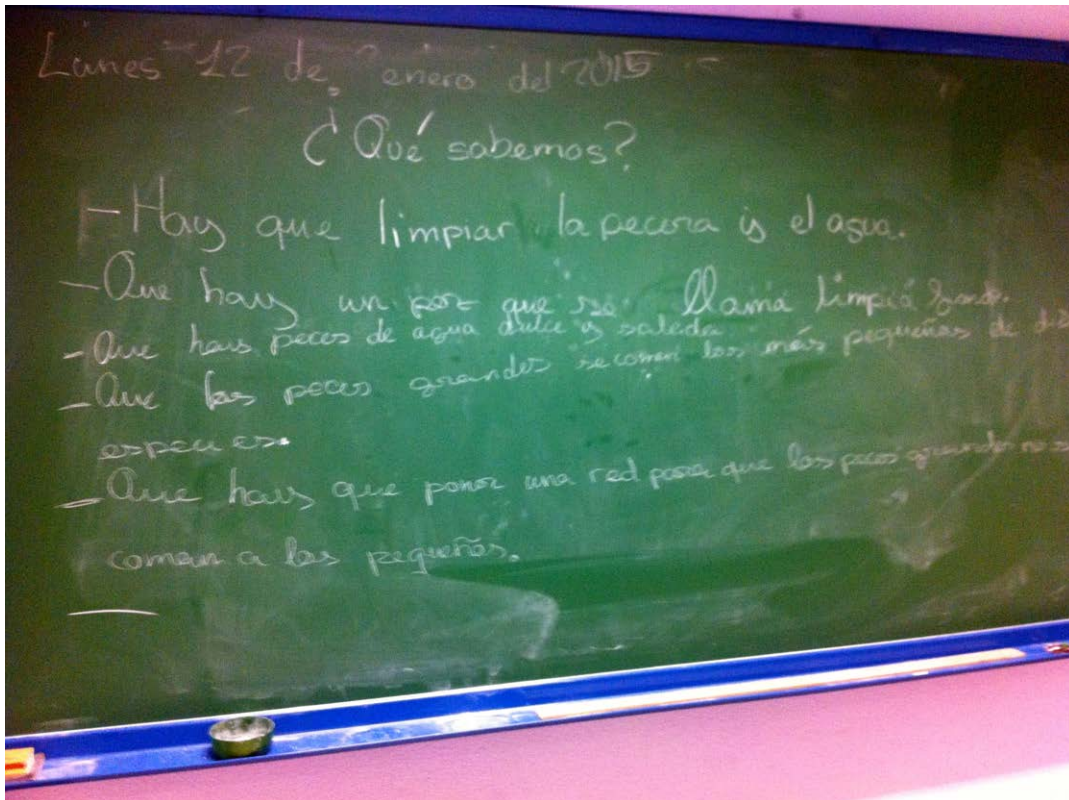 Lunes 12 de enero del 2015
¿Qué sabemos?
- Hay que limpiar la pecera y el agua.
- Que hay un pez que se llama limpia fondo.
- Que hay peces de agua dulce y salada.
- Que los peces grandes se comen los más pequeños de
especies.
- Que hay que poner una red para que los peces grandes no se
coman a los pequeños.